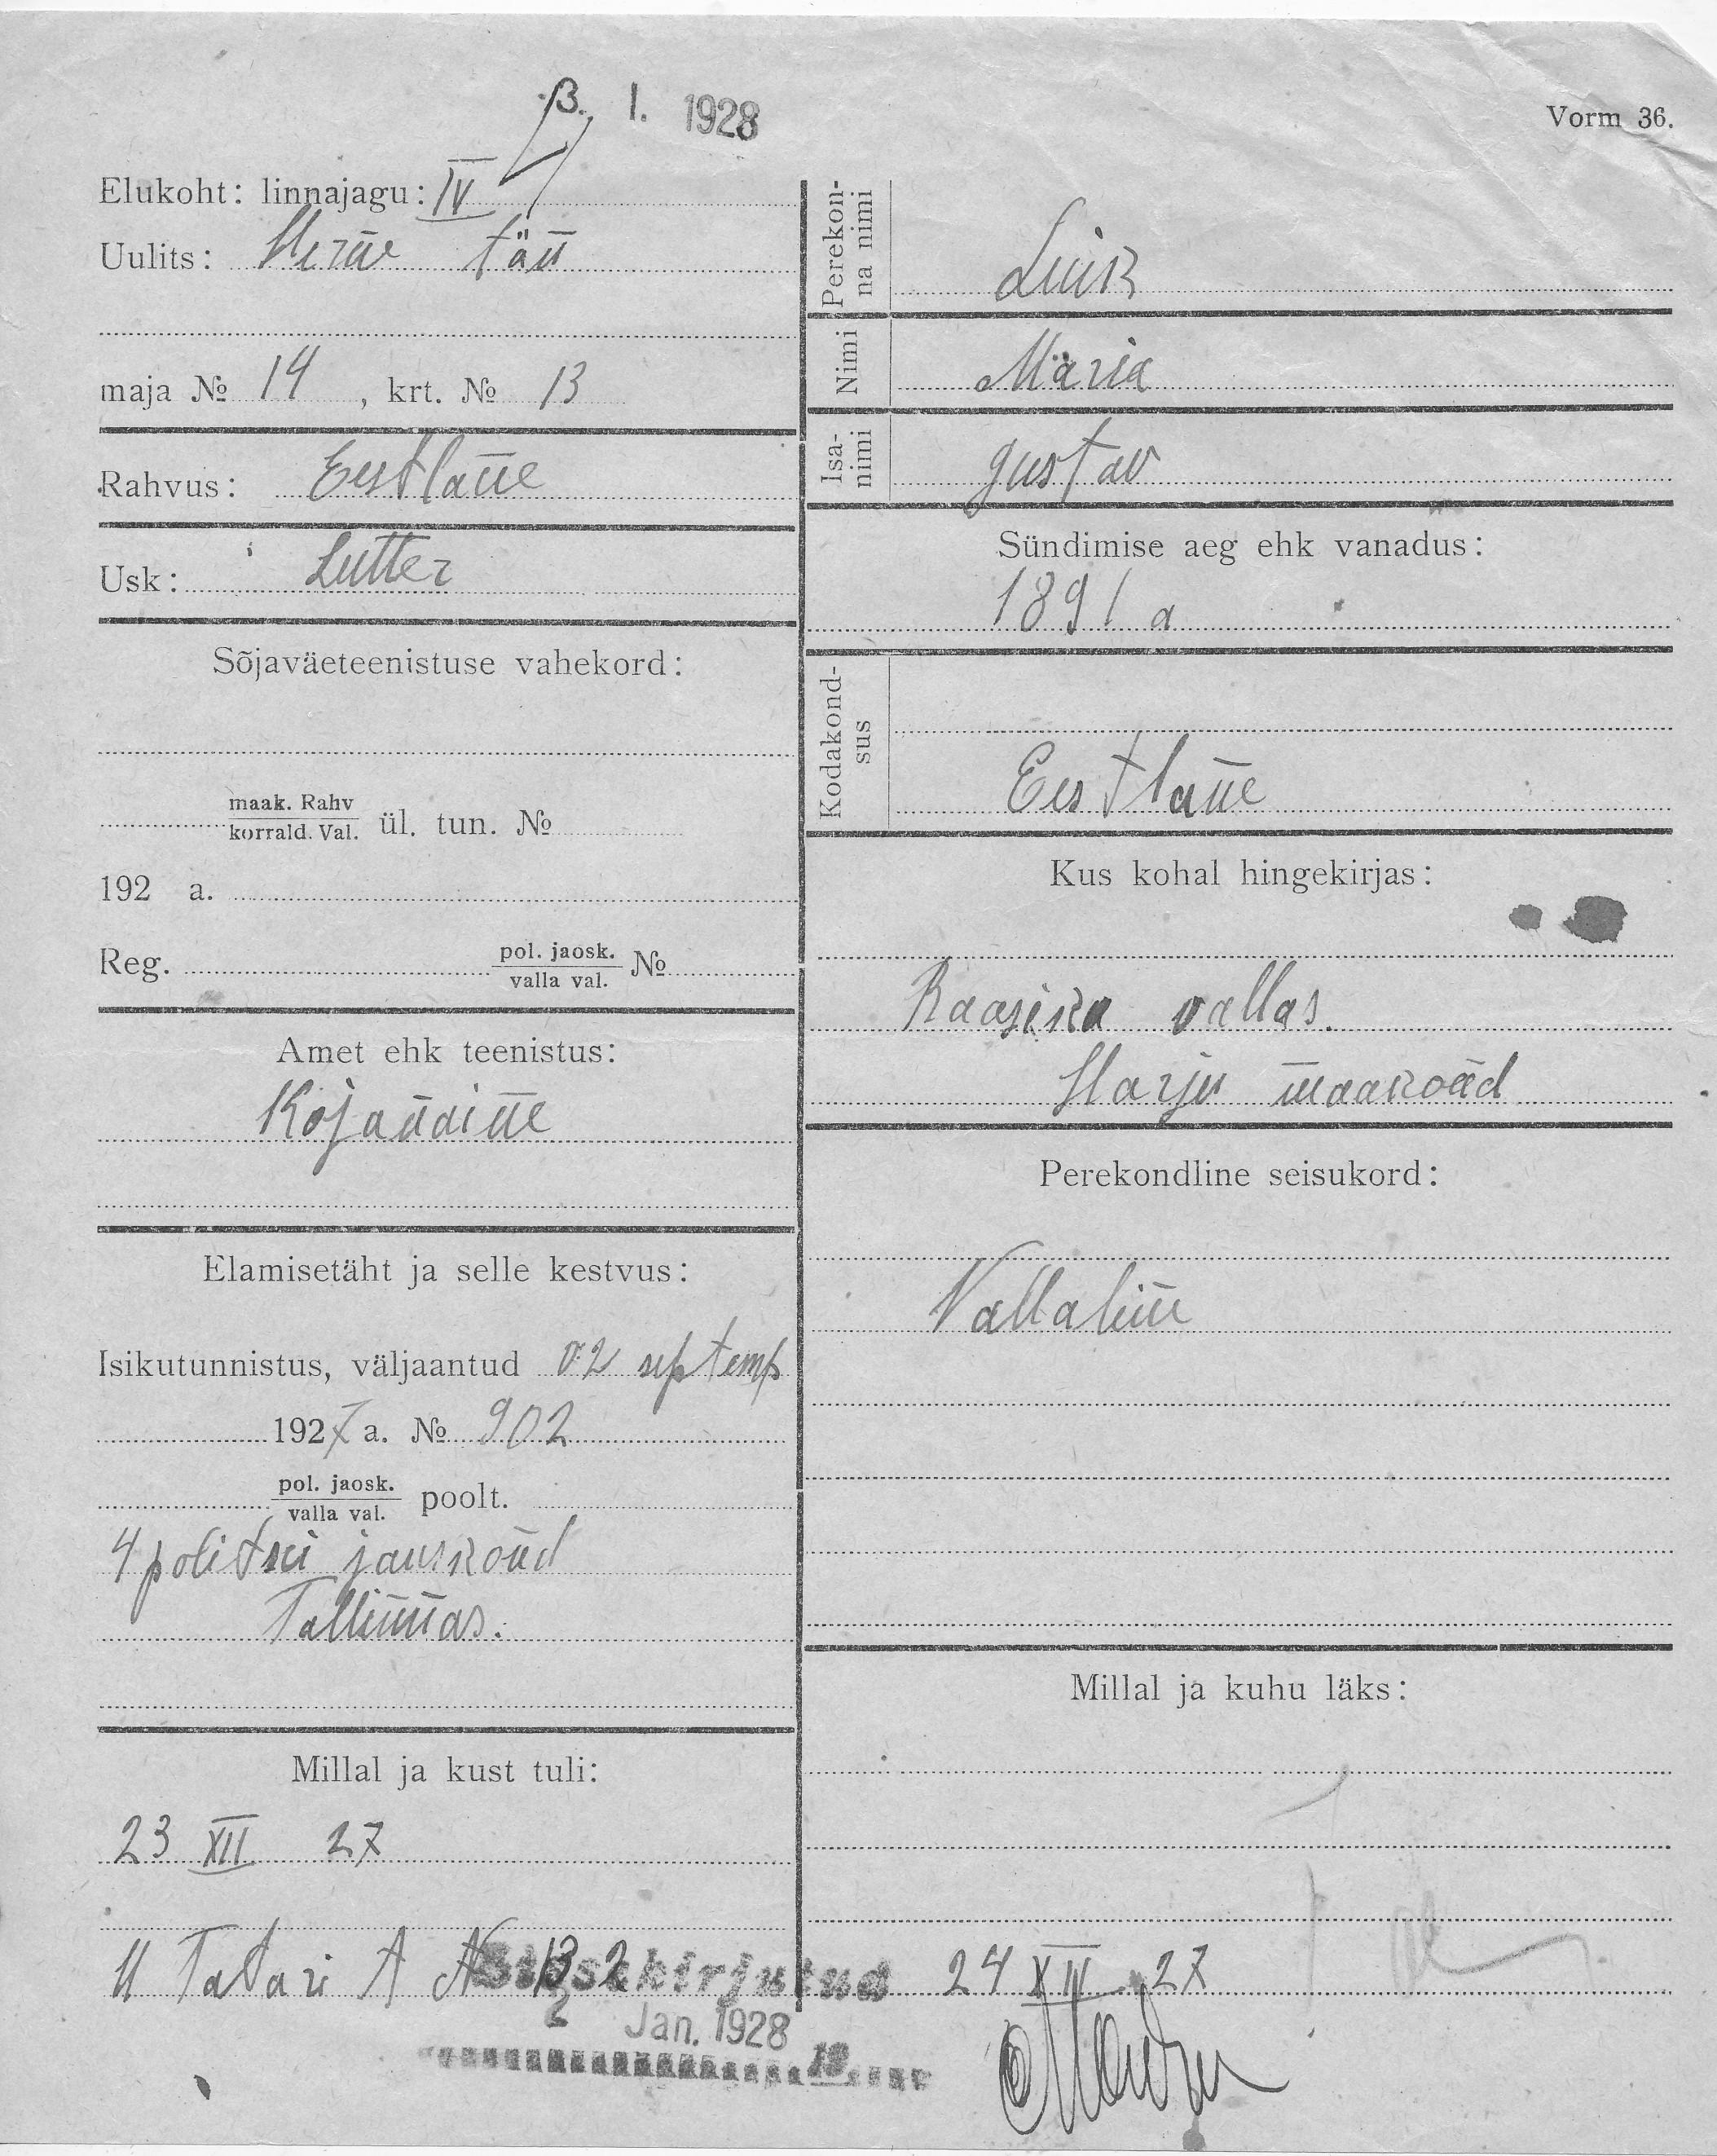 1. 1928
Vorm 36.
Elukoht: linnajagu: IV
Uulits: Herne tän
maja № 14, krt. № 13
Rahvus: Eestlane
Usk: Lutter
Sõjaväeteenistuse vahekord:
maak. Rahv
korrald. Val. ül. tun. №
192 a.
Reg. pol. jaosk.
valla val. №
Amet ehk teenistus:
Kojanaine
Elamisetäht ja selle kestvus:
Isikutunnistus, väljaantud 02 septemp
1927 a. № 902
pol. jaosk.
valla val. poolt.
4 politsei jauskond
Tallinnas.
Millal ja kust tuli:
23 XII 27
Tatari
Perekon-
na nimi
Luik
Nimi
Maria
Isa-
nimi
Gustav
Sündimise aeg ehk vanadus:
1891 a
Kodakond-
sus
Eestlane
Kus kohal hingekirjas:
Raasiku vallas.
Harju maakond
Perekondline seisukord:
Vallalin
Millal ja kuhu läks:
24 XII 27
Sissekirjutud
2 Jan. 1928
19